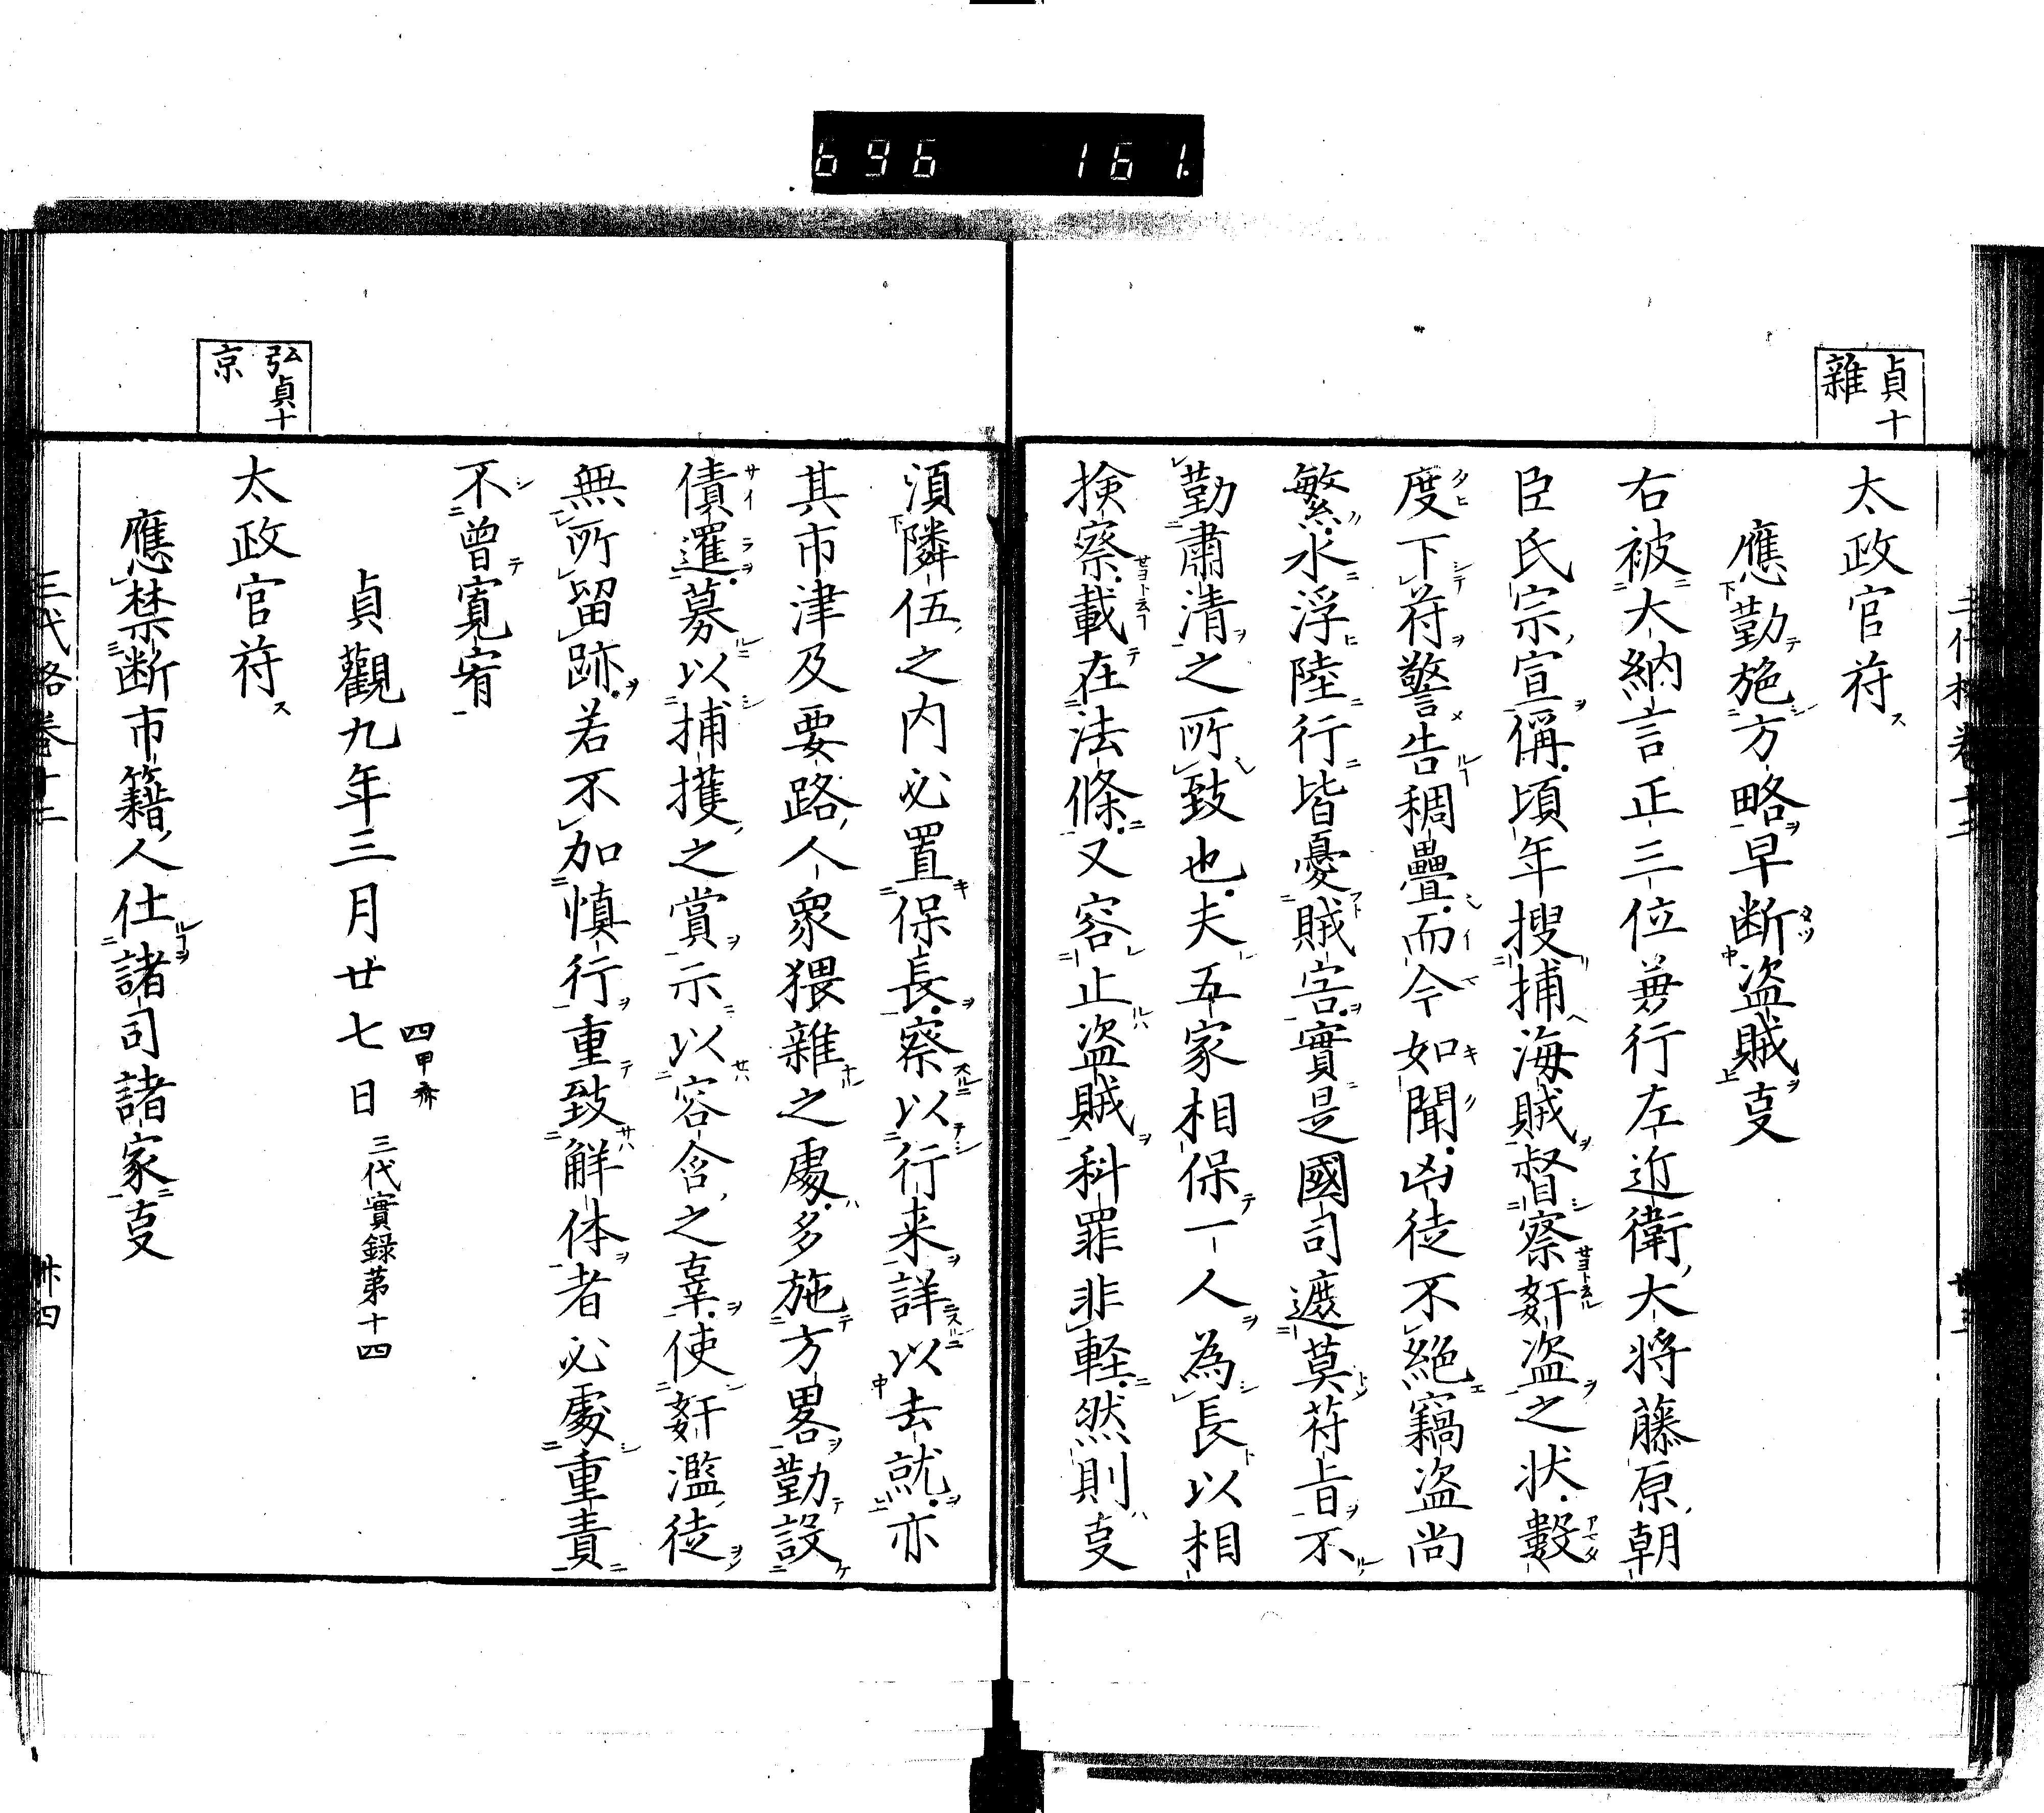 696 161.
貞十
雜
太政官符
應勤施方略早断盗賊㕝
右被大納言正三位兼行左近衛大将藤原朝
臣氏宗宣偁頃年搜捕海賊督察姧盗之状數
度下符警告稠疊而今如聞凶徒不絶竊盗尚
繁水浮陸行皆憂賊害實是國司遮莫符旨不
勤肅清之所致也夫五家相保一人為長以相
検察載在法條又容止盗賊科罪非軽然則㕝
須隣伍之内必置保長察以行来詳以去就亦
其市津及要路人衆猥雜之處多施方畧勤設
債邏募以捕獲之賞示以容含之辜使姧濫徒
無所留跡若不加慎行重致解体者必處重責
不曾寛宥
貞觀九年三月廿七日 三代實錄第十四
弘貞十
京
太政官符
應禁断市籍人仕諸司諸家㕝
三代格卷十二
卅四